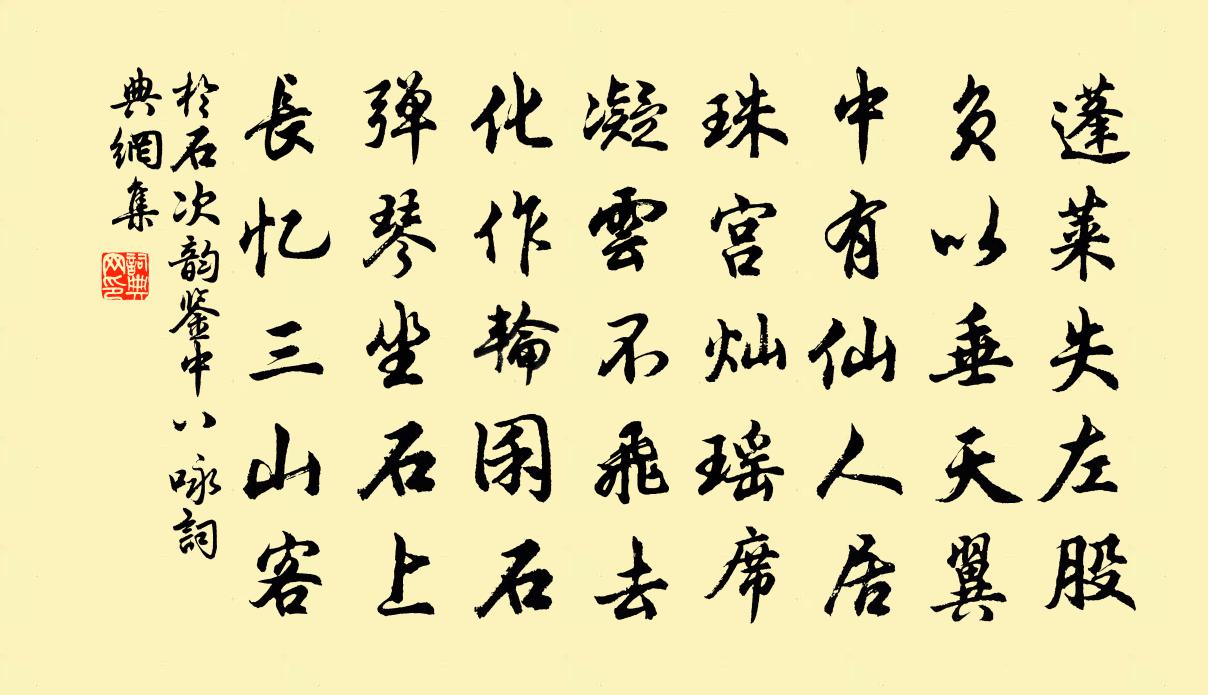 蓬莱失左股
负以垂天翼
中有仙人居
珠宫灿瑶席
凝雲不飛去
化作輪囷石
弹琴坐石上
長忆三山客
於石次韵鉴中八咏詞
典網集
詞典
网印